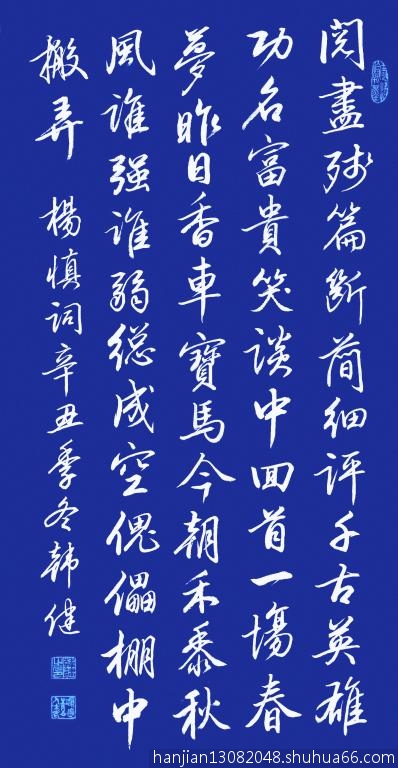 阅盡残篇斷简细评千古英雄
功名富貴笑谈中回首一塲春
夢昨日香車寶馬今朝禾黍秋
風谁强谁弱總成空傀儡棚中
搬弄 楊慎词辛丑季冬韩健
hanjian13082048.shuhua66.com